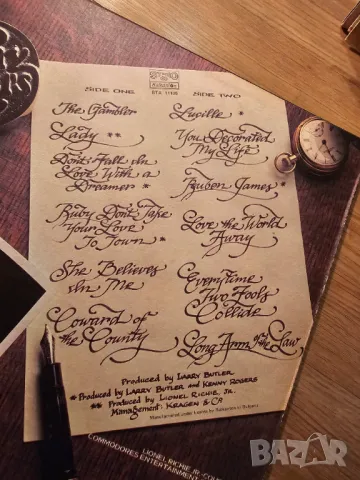 SIDE ONE
The Gambler
Lady **
Don't Fall In
Love With a
Dreamer *
Ruby Don't Take
Your Love
To Town *
She Believes
In Me
Coward of
the County
SIDE TWO
Lucille *
You Decorated
My Life
Ruben James *
Love the World
Away
Everytime
Two Fools
Collide
Long Arm of the Law
Produced by Larry Butler
* Produced by Larry Butler and Kenny Rogers
** Produced by Lionel Richie, Jr.
Management: Kragen & Co
LIONEL RICHIE JR
COMMODORES ENTERTAINMENT
BAZAR
bg